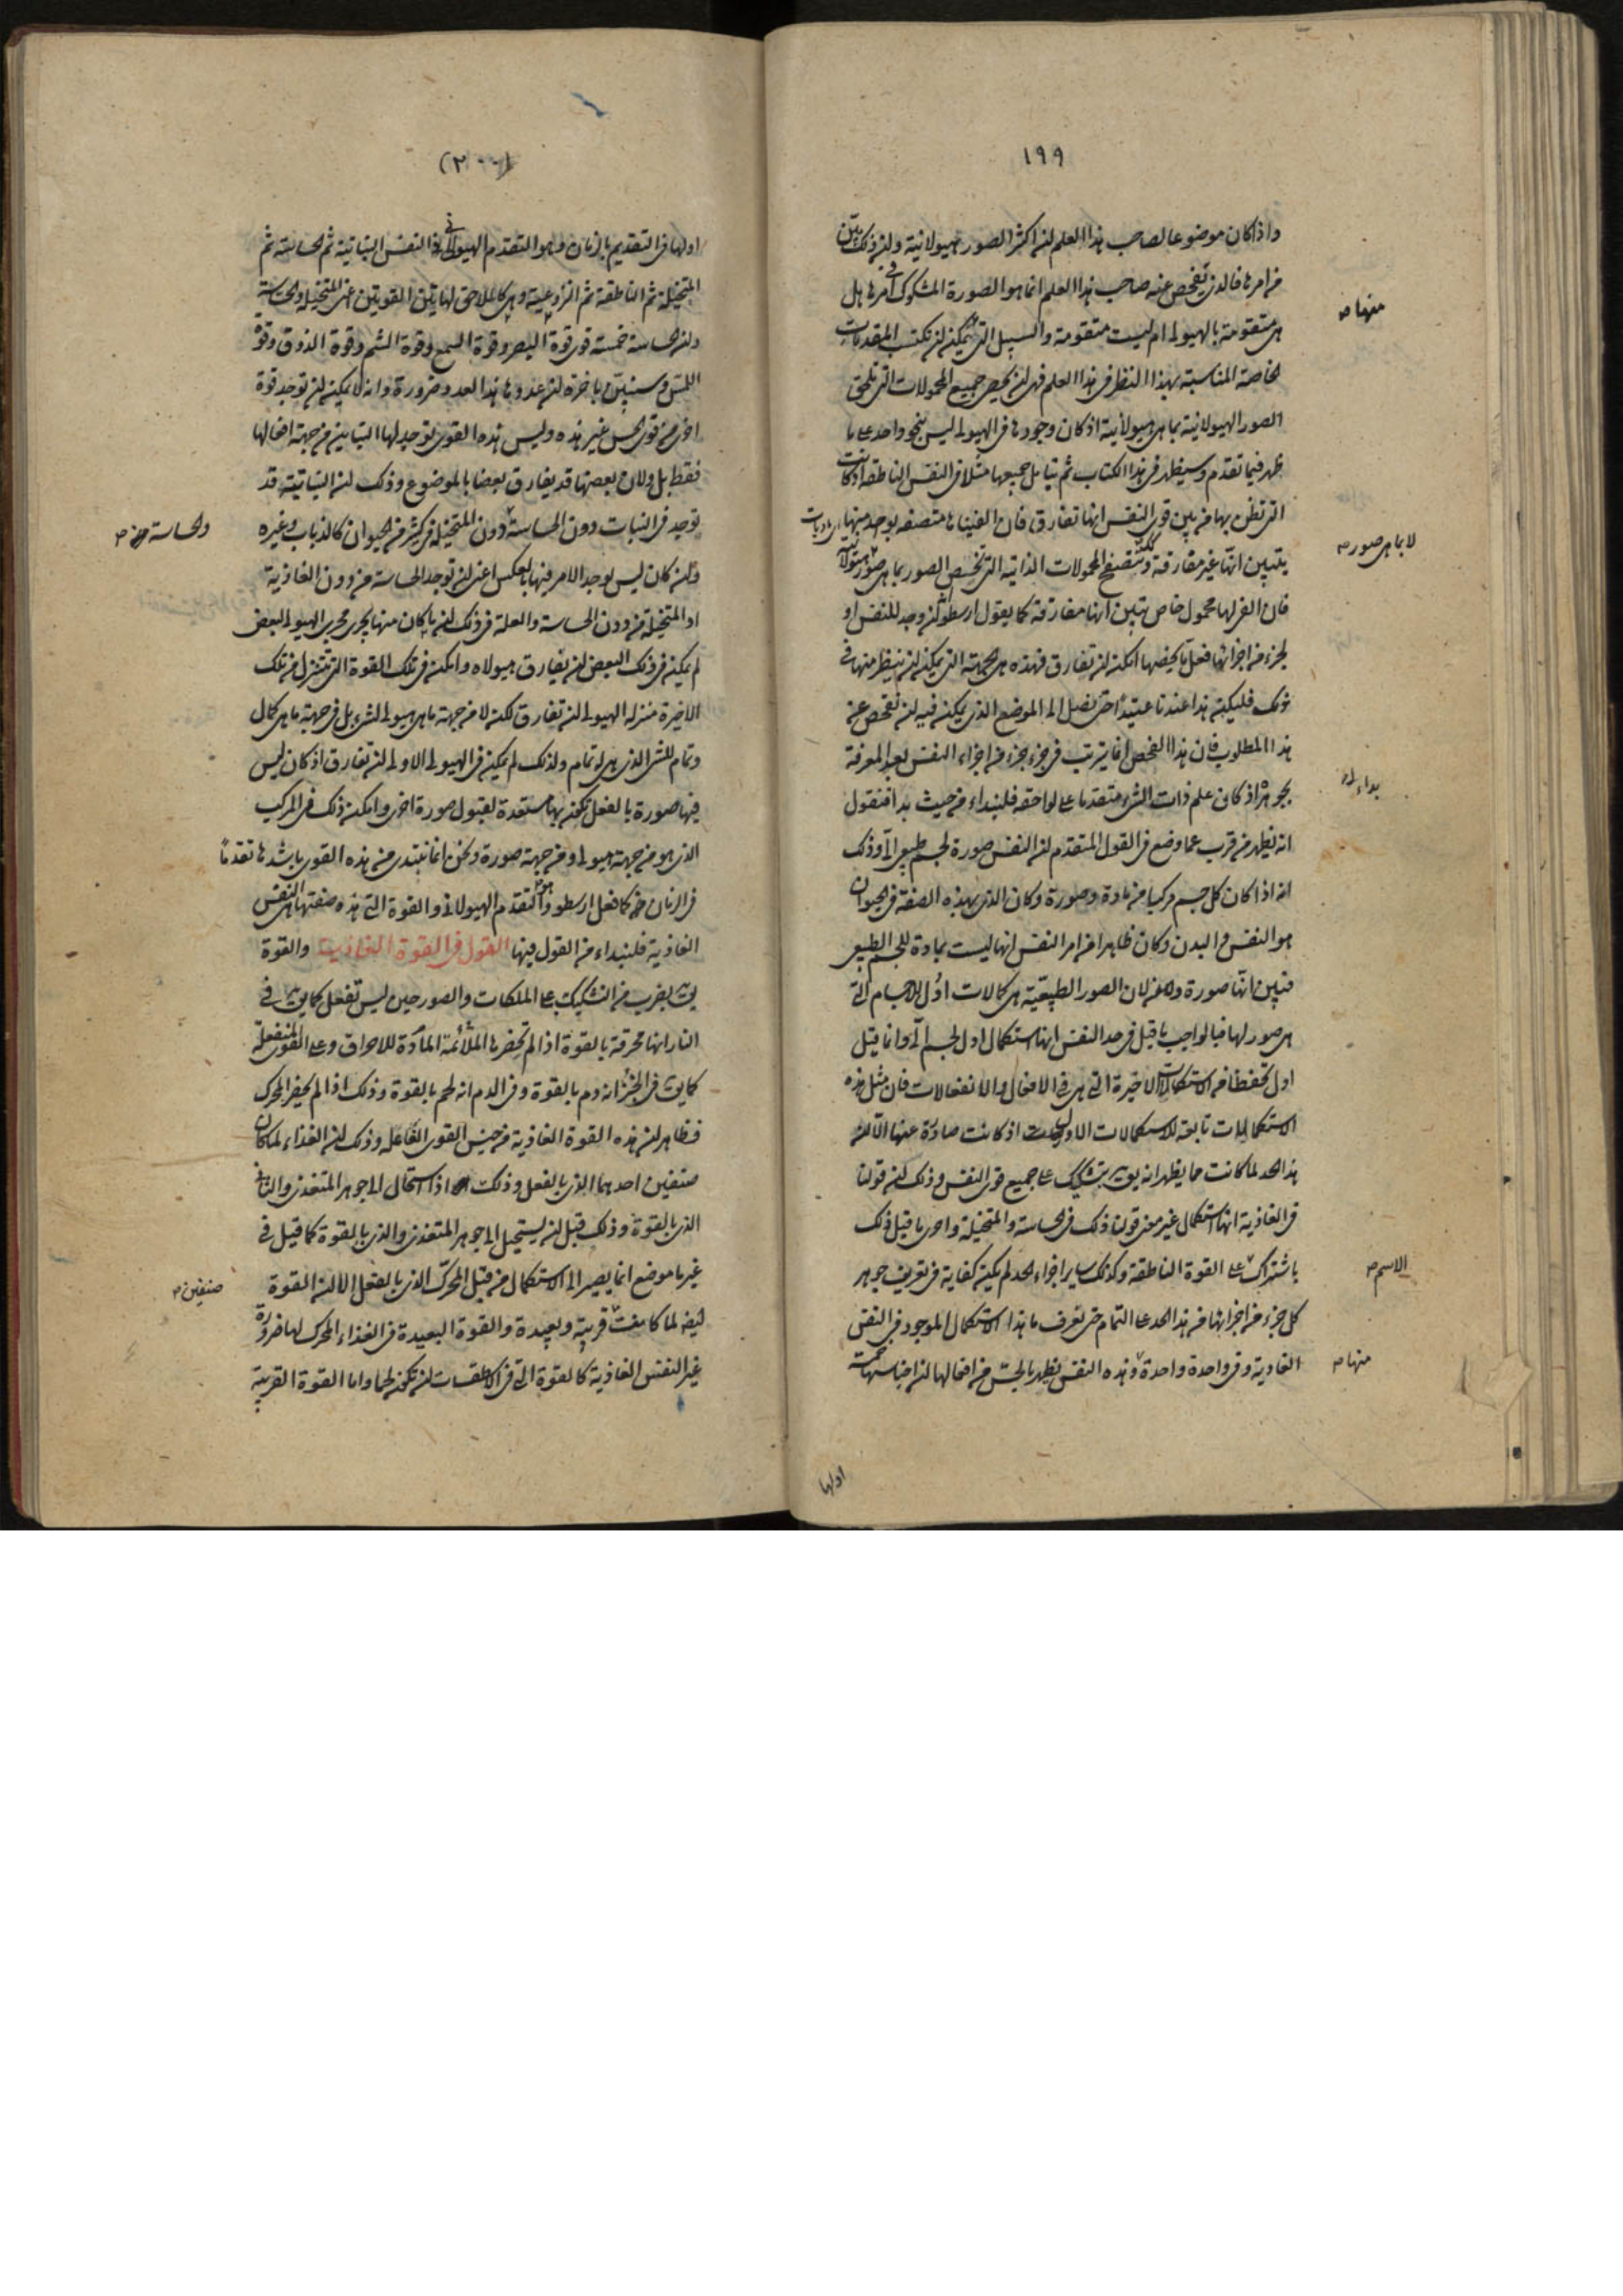 ١٩٩
واذا كان موضوعا لصاحب هذا العلم ان اكثر الصور هيولانية وان ذلك بيّن
من امرها فالذي يفحص عنه صاحب هذا العلم انما هو الصورة المشكوك في امرها هل
هي متقومة بالهيولى ام ليست متقومة والسبيل التي يمكن ان تكتسب المقدمات
الخاصة المناسبة بهذا النظر في هذا العلم فهي ان يحصى جميع المحمولات التي تلحق
الصور الهيولانية بما هي هيولانية اذ كان وجودها في الهيولى ليس بنحو واحد على ما
ظهر فيما تقدم وسيظهر في هذا الكتاب ثم يتامل جميعها مثلا في النفس الناطقة اذ كانت
التي تظن بها من بين قوى النفس انها تفارق فان الفيناها متصفة بواحد منها
يتبين انها غير مفارقة وكذلك نتصفح المحمولات الذاتية التي تخص الصور بما هي صور
فان الفي لها محمول خاص تبين انها مفارقة كما يقول ارسطو ان وجد للنفس او
لجزء من اجزائها فعل ما يخصها امكن ان تفارق فهذه هي الجهة التي يمكن ان ينظر منها في
ذلك فليكن هذا عندنا عتيدا حتى نصل الى الموضع الذي يمكن فيه ان نفحص عن
هذا المطلوب فان هذا الفحص انما يترتب في جزء جزء من اجزاء النفس بعد المعرفة
بجوهره اذ كان علم ذات الشيء متقدما على لواحقه فلنبداء من حيث بدا فنقول
انه يظهر من قرب مما وضع في القول المتقدم ان النفس صورة لجسم طبيعي آلي وذلك
انه اذا كان كل جسم مركبا من مادة وصورة وكان الذي بهذه الصفة في الحيوان
هو النفس والبدن وكان ظاهرا من امر النفس انها ليست بمادة للجسم الطبيعي
فتبين انها صورة ولان الصور الطبيعية هي كمالات اول للاجسام التي
هي صور لها فبالواجب ما قيل في حد النفس انها استكمال اول لجسم آلي وانما قيل
اول تحفظا من الاستكمالات الاخيرة التي هي في الافعال والانفعالات فان مثل هذه
الاستكمالات تابعة للاستكمالات الاول اذ كانت صادرة عنها الا ان
هذا الحد لما كانت مما يظهر انه يق بتشكيك على جميع قوى النفس وذلك ان قولنا
في الغاذية انها استكمال غير معنى قولنا ذلك في الحاسة والمتخيلة واحرى ما قيل ذلك
باشتراك على القوة الناطقة وكذلك ساير اجزاء الحد لم يكن كفاية في تعريف جوهر
كل جزء من اجزائها من هذا الحد على التمام حتى نعرف ما هذا الاستكمال الموجود في النفس
الغاذية وفي واحدة واحدة وهذه النفس يظهر بالحس من افعالها ان اجناسها خمسة
اولها
منها ص
لا بما هي صور ص
الاسم ص
منها ص
(٢٠٠)
اولها في التقديم بالزمان وهو التقدم الهيولاني النفس النباتية ثم الحاسة ثم
المتخيلة ثم الناطقة ثم النزوعية وهي كاللاحق لهاتين القوتين اعني المتخيلة والحاسة
وان الحاسة خمسة قوى قوة البصر وقوة السمع وقوة الشم وقوة الذوق وقوة
اللمس وسنبين باخرة ان عددها هذا العدد ضرورة وانه لا يمكن ان توجد قوة
اخرى من قوى الحس غير هذه وليس هذه القوى يوجد لها التباين من جهة افعالها
فقط بل ولان بعضها قد يفارق بعضا بالموضوع وذلك ان النباتية قد
توجد في النبات دون الحاسة دون المتخيلة في كثير من الحيوان كالذباب وغيره
وان كان ليس يوجد الامر فيها بالعكس اعني ان توجد الحاسة من دون الغاذية
او المتخيلة من دون الحاسة والعلة في ذلك ان ما كان منها يجري مجرى الهيولى لبعض
لم يمكن في ذلك البعض ان يفارق هيولاه وامكن في تلك القوة التي تتنزل من تلك
الاخيرة منزلة الهيولى ان تفارق لكن لا من جهة ما هي هيولى لشيء بل في جهة ما هي كمال
وتمام للشي الذي هي له تمام ولذلك لم يمكن في الهيولى الاولى ان تفارق اذ كان ليس
فيها صورة بالفعل تكون بها مستعدة لقبول صورة اخرى وامكن ذلك في المركب
الذي هو من جهة هيولى ومن جهة صورة ونحن انما نبتدي من هذه القوى باشدها تقدما
في الزمان كما فعل ارسطو وهو التقدم الهيولاني والقوة التي هذه صفتها هي النفس
الغاذية فلنبداء من القول فيها القول في القوة الغاذية والقوة
يق بضرب من التشكيك على الملكات والصور حين ليس تفعل كما يق في
النار انها محرقة بالقوة اذا لم تحضرها الملائمة المادة للاحراق وعلى القوى المنفعلة
كما يق في الخبز انه دم بالقوة وفي الدم انه لحم بالقوة وذلك اذا لم يحضر المحرك
فظاهر ان هذه القوة الغاذية من جنس القوى الفاعلة وذلك ان الغذاء لما كان
صنفين احدهما الذي بالفعل وذلك اذا استحال الى جوهر المتغذي والثاني
الذي بالقوة وذلك قبل ان يستحيل الى جوهر المتغذي والذي بالقوة كما قيل في
غير ما موضع انما يصير الى الاستكمال من قبل المحرك الذي بالفعل الا ان القوة
ايضا لما كانت قريبة وبعيدة والقوة البعيدة في الغذاء المحرك لها ضرورة
غير النفس الغاذية كالقوة التي في الاسطقسات ان تكون لحما واما القوة القريبة
والحاسة ص
صنفين ص